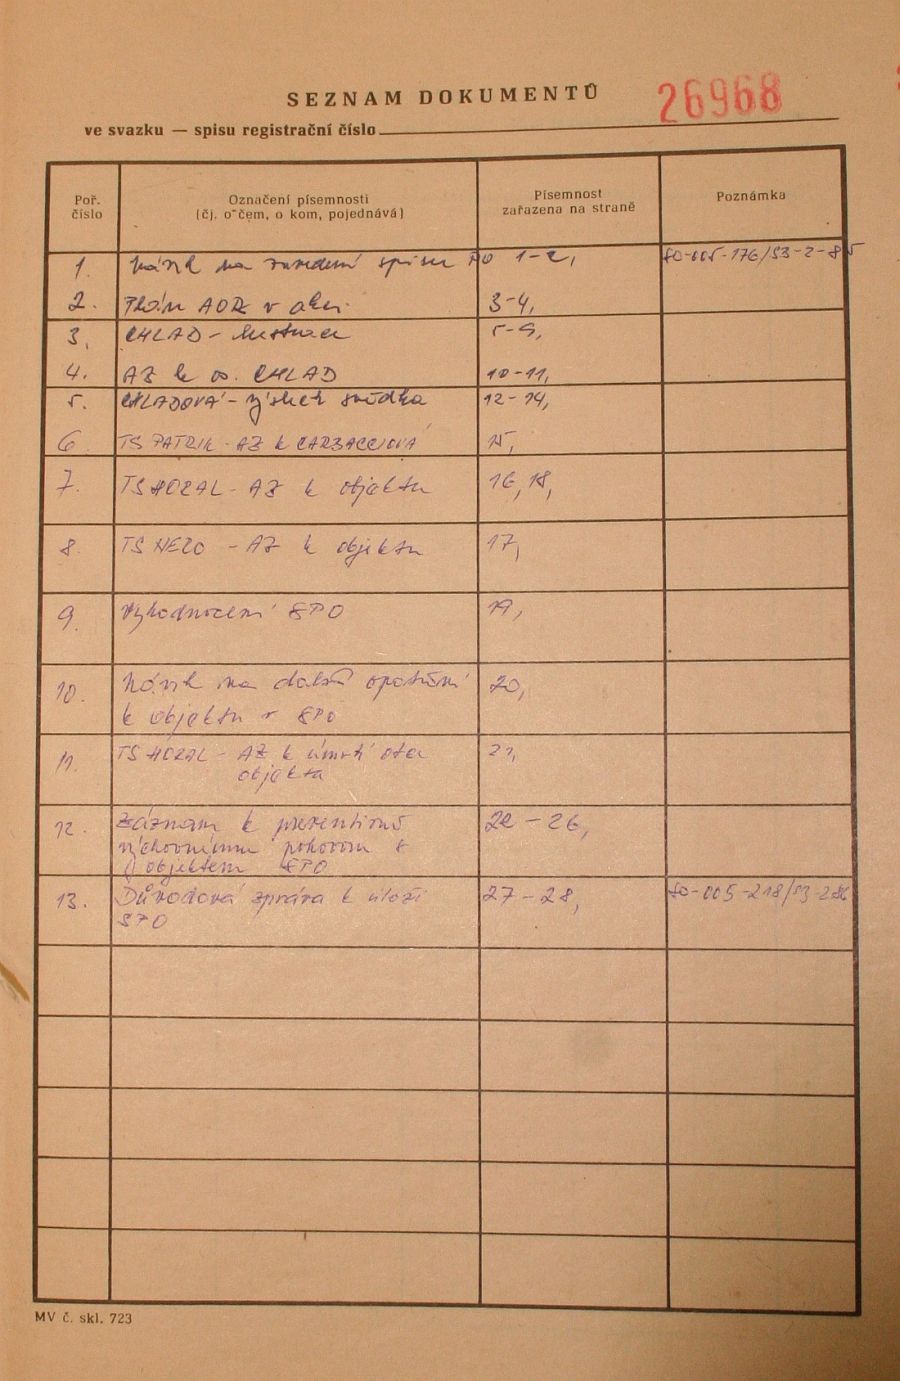 SEZNAM DOKUMENTŮ
26968
ve svazku — spisu registrační číslo
Poř. číslo
Označení písemnosti
(čj. o čem, o kom, pojednává)
Písemnost
zařazena na straně
Poznámka
1. Návrh na zavedení spisu PO 1-2,
2. Plán AOR v akci 3-4,
3. CHLAD - lustrace 5-9,
4. AZ k os. CHLAD 10-11,
5. CHLADOVÁ - výslech svědka 12-14,
6. TS PATRIK - AZ k 15,
7. TS HORAL - AZ k objektu 16, 18,
8. TS NERO - AZ k objektu 17,
9. Vyhodnocení SPO 19,
10. Návrh na další opatření 20,
k objektu v SPO
11. TS HORAL - AZ k úmrtí otce 21,
objekta
12. Záznam k preventivně 22 - 26,
výchovnému pohovoru s
objektem SPO
13. Důvodová zpráva k uložení 27 - 28,
SPO
MV č. skl. 723